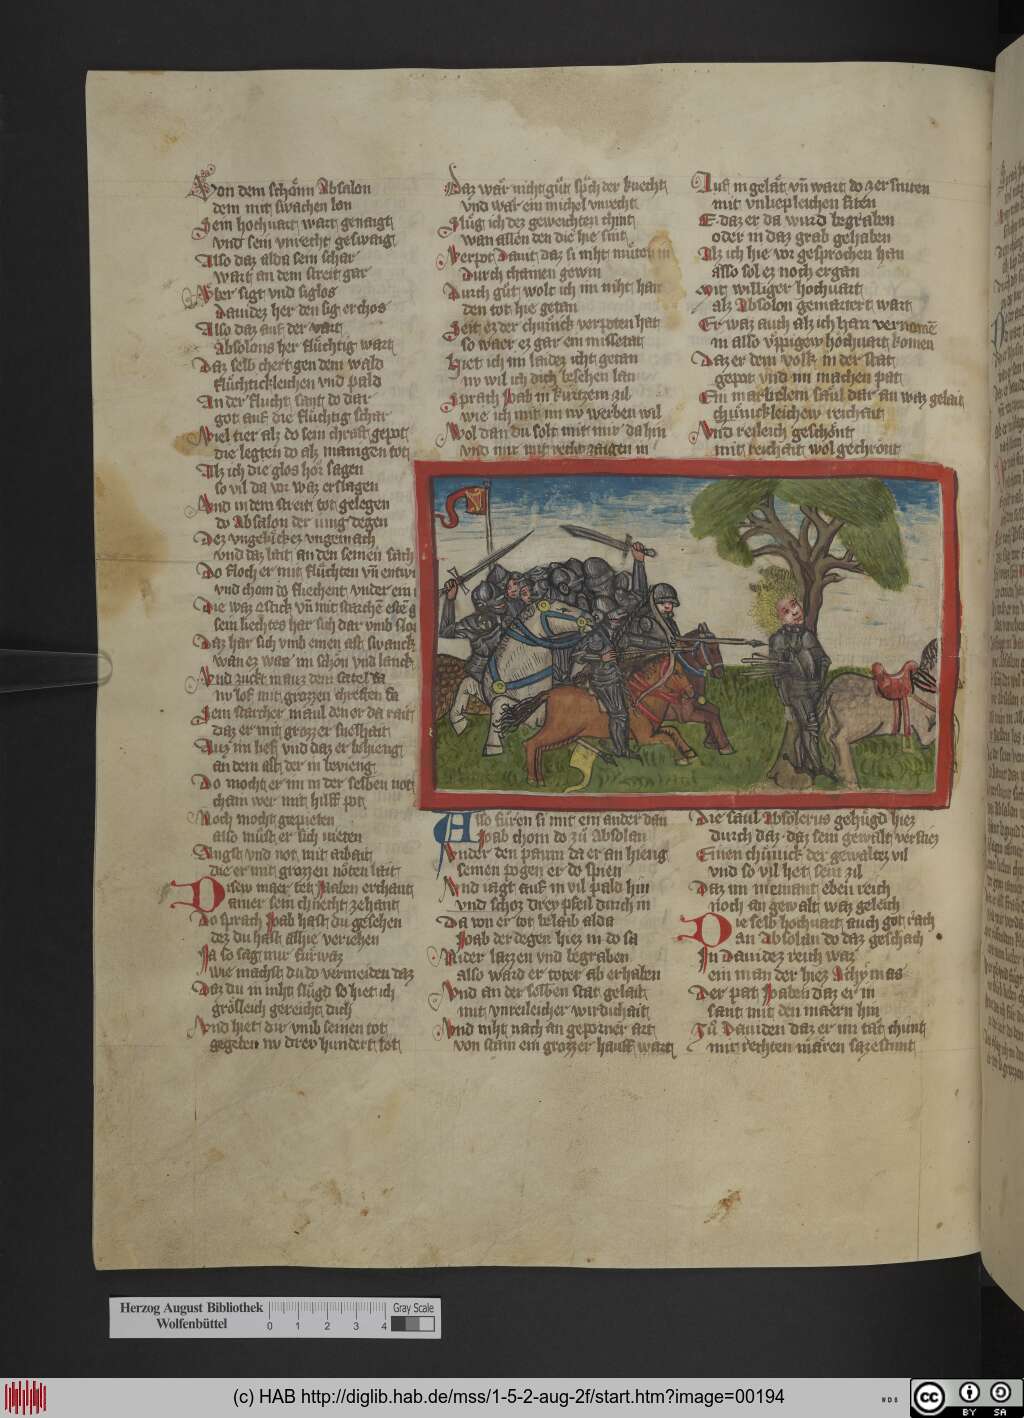 Von dem schönn Absalon
dem mit swachen lon
Sein hochuart wart genaigt
vnd sein vnrecht geswaigt
Also daz alda sein schar
wart an dem streit gar
Aber sigt vnd siglos
Dauidez her den sig erchos
Also daz auf der vart
Absolons her flüchtig wart
Daz selb chert gen dem wald
flüchticleichen vnd pald
In der flucht sant do dar
got auf die flüchtig schar
Wiel tier alz do sein chraft gepot
die legten do alz manigen tot
Alz ich die glos hör sagen
so vil da vor waz erslagen
Vnd in dem streit tot gelegen
do Absalon der iung degen
Dez vngelückez vngemach
vnd daz lait an den seinen sach
Do floch er mit flüchten vn
vnd chom do fliechent vnder ein
Die waz dick vn mit starchen
sein liechtes har sich dar vmb
Daz har sich vmb einen ast swanck
wan ez waz im schön vnd lanck
Vnd zuckt in auz dem satel da
nv lof mit grozzen chreften sa
Sein starcher maul den er da rait
daz er mit grozzer snelhait
Auz im lieff vnd daz er behieng
an dem ast der in bevieng
Do mocht er im in der selben not
cham wer mit hilff pot
Noch mocht gepieten
also müst er sich nieten
Angst vnd not mit arbait
die er mit grozzen nöten lait
Disew maer tet Joaben erchant
ainer sein chnecht zehant
Do sprach Joab hast du gesehen
dez du hast alhie veriehen
Ja so sag mir fürwar
wie machst du do vermeiden daz
Daz du in niht slügd so hiet ich
grösleich gereicht dich
Vnd hiet dir vmb seinen tot
gegeben nv drev hundert lot
Daz wär nicht güt sprach der knecht
vnd wär ein michel vnrecht
Slüg ich dez geweichten chint
wan allen den die hie sint
Verpot Dauit daz si niht müten in
Durch chainen gewin
Durch güt wolt ich im niht han
den tot hie getan
Seit ez der chünick verpoten hat
so waer ez gar ein missetat
Hiet ich im laidez icht getan
nv wil ich dich besehen lan
Sprach Joab in kurtzem zil
wie ich mit im nv werben wil
Wol dan du solt mit mir da hin
vnd mir mit recht zaigen in
Also füren si mit ein ander dan
Joab chom do zü Absolan
Vnder den paum da er an hieng
seinen pogen er do spien
Vnd iagt auf in vil pald hin
vnd schoz drey pfeil durch in
Da von er tot belaib alda
Joab der degen hiez in do sa
Nider lazzen vnd begraben
also ward er toter ab erhaben
Vnd an der selben stat gelait
mit vnreileicher wirdichait
Vnd niht nach an geporner art
von stain ein grozzer hauff wart
Auf in gelät vn wart do
mit vnliepleichen siten
E daz er da wurd begraben
oder in daz grab gehaben
Alz ich hie vor gesprochen han
also sol ez noch ergan
Mit williger hochuart
alz Absolon gemartert wart
Er waz auch alz ich han vernomen
in also vppigew hochuart komen
Daz er dem volk in der stat
gepot vnd im machen pat
Ein marbelein saul dar an waz gelait
chünickleichew reichait
Vnd reileich geschönt
mit reichait wol gechrönt
Die saul Absolerus gehügd hiez
durch daz daz sein gewalt verstiez
Einen chünick der gewaltez vil
vnd so vil het sein zil
Daz im niemant eben reich
noch an gewalt waz geleich
Die selb hochuart auch got rach
an Absolan do daz geschach
In Dauidez reich waz
ein man der hiez Achymas
Der pat Joaben daz er in
sant mit den maern hin
Zü Dauiden daz er im tät chunt
mit rechten maeren sazestunt
Herzog August Bibliothek
Wolfenbüttel
0 1 2 3 4
Gray Scale
(c) HAB http://diglib.hab.de/mss/1-5-2-aug-2f/start.htm?image=00194
WDB
cc BY SA